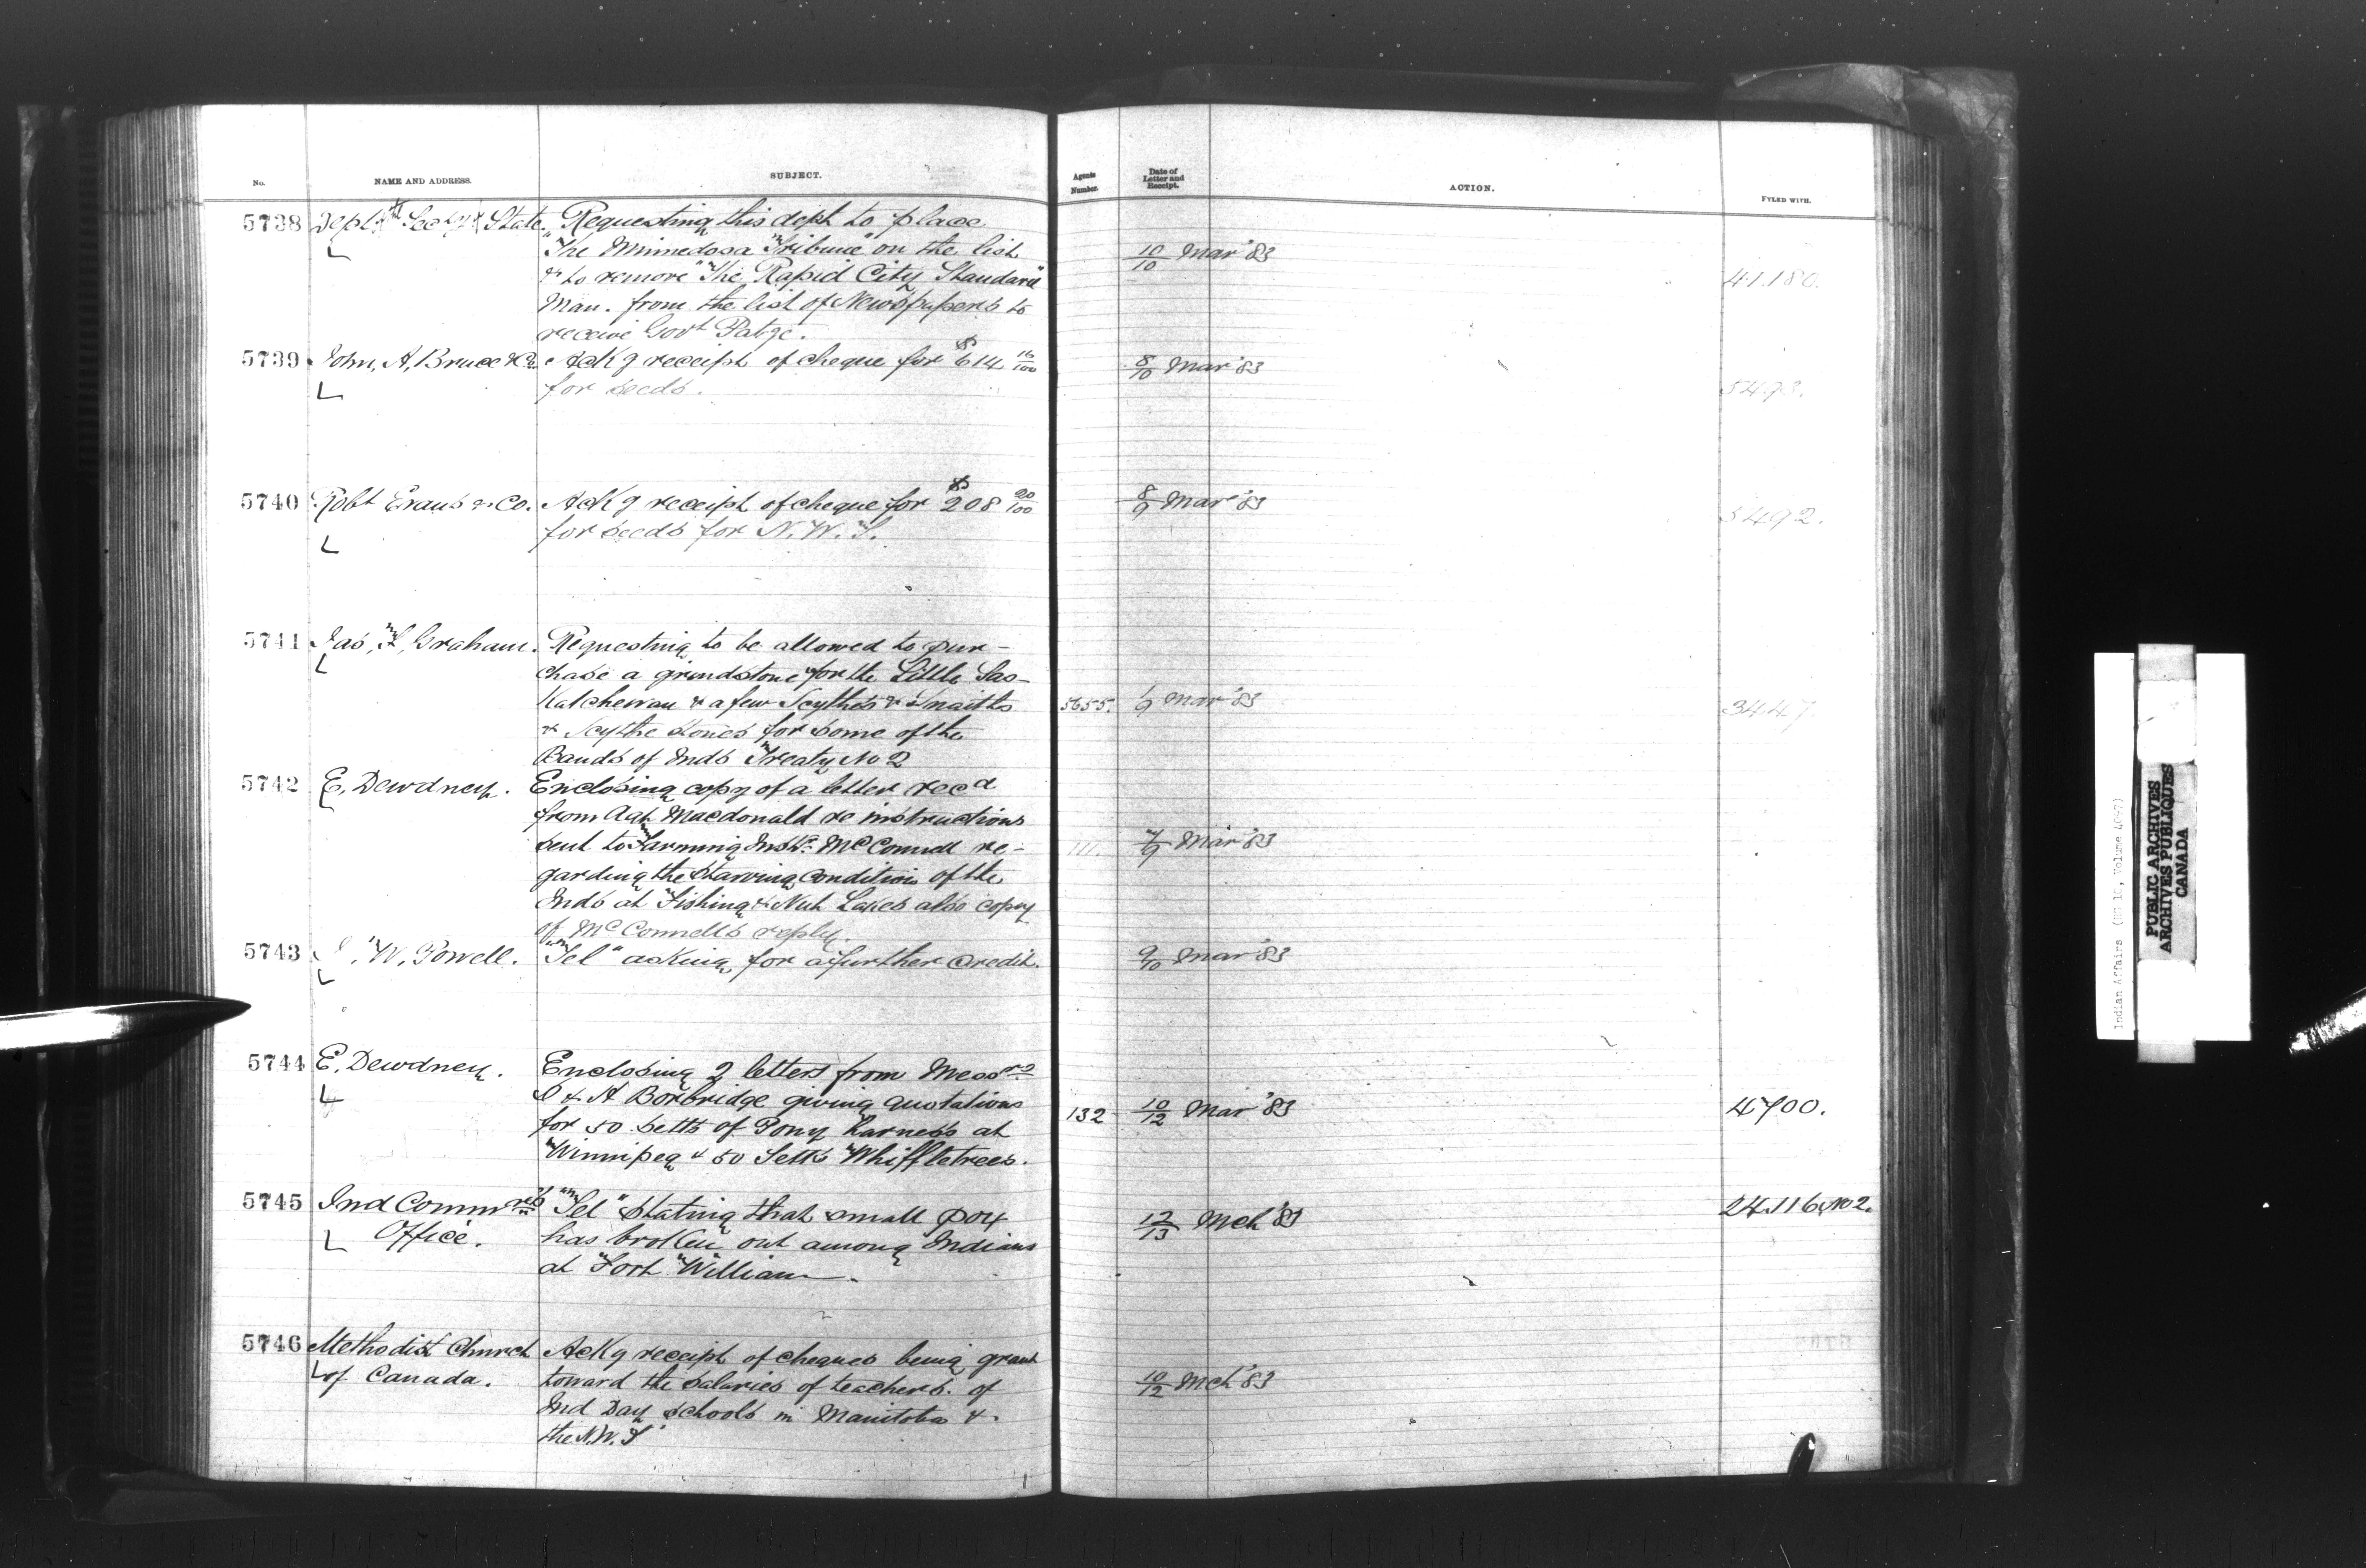 No. NAME AND ADDRESS. SUBJECT. Agents Number. Date of Letter and Receipt. ACTION. FYLED WITH.
5738 Dept. Secy of State. Requesting this dept to place
"The Minnedosa Tribune" on the list 10/10 Mar '83
& to remove "The Rapid City Standard" 41.180.
Man. from the list of Newspapers to
receive Govt Patge.
5739 John, A, Bruce & Co. Ackg receipt of cheque for $614 16/100 8/10 Mar '83
for seeds. 5493.
5740 Robt Evans & Co. Ackg receipt of cheque for $208 20/100 8/9 Mar '83
for seeds for N.W.T. 5492.
5741 Jas, F, Graham. Requesting to be allowed to pur-
chase a grindstone for the Little Sas-
Katchewan & a few Scythes & Snaiths 5655. 1/9 Mar '83 3447.
& Scythe stones for some of the
Bands of Inds Treaty No 2
5742 E. Dewdney. Enclosing copy of a letter recd
from Agt Macdonald re instructions
sent to Farming Instr. McConnell re- 111. 7/9 Mar '83
garding the starving condition of the
Inds at Fishing & Nut Lakes also copy
of McConnells reply.
5743 W. Powell. "Tel" asking for a further credit. 9/10 Mar '83
5744 E. Dewdney. Enclosing 2 letters from Messrs
S & H Borbridge giving quotations 132 10/12 Mar '83 4700.
for 50 setts of Pony harness at
Winnipeg & 50 Setts Whiffletrees.
5745 Ind Commrs "Tel" stating that small pox 12/13 Mch '83 24.116, No 2.
Office. has broken out among Indians
at Fort William.
5746 Methodist Church Ackg receipt of cheques being grant
of Canada. toward the salaries of teachers. of 10/12 Mch '83
Ind Day schools in Manitoba &
the N.W.T
Indian Affairs (RG 10, Volume
PUBLIC ARCHIVES
ARCHIVES PUBLIQUES
CANADA